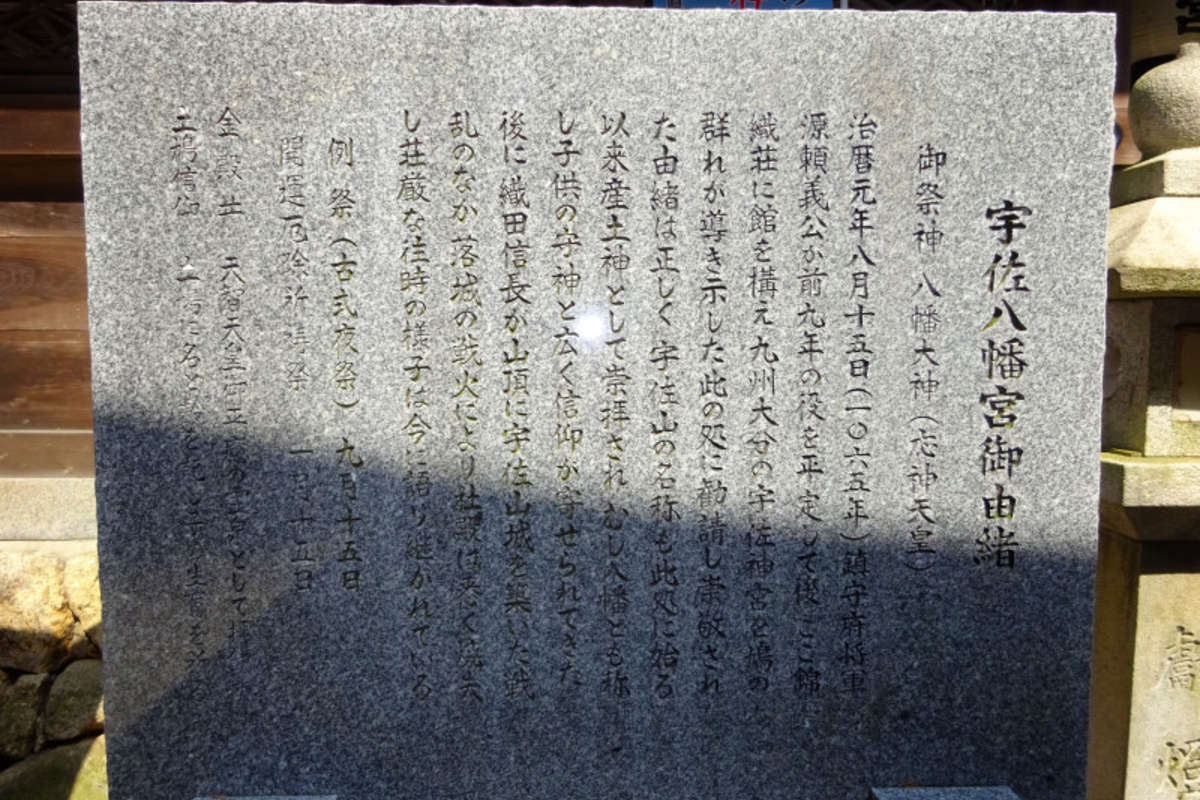 宇佐八幡宮御由緒
御祭神 八幡大神（応神天皇）
治暦元年八月十五日（一〇六五年）鎮守府将軍
源頼義公が前九年の役を平定して後ここ錦
織荘に館を構え九州大分の宇佐神宮を鳩の
群れが導き示した此の処に勧請し崇敬され
た由緒は正しく宇佐山の名称も此処に始る
以来産土神として崇拝されむし八幡とも称
し子供の守神と広く信仰が寄せられてきた
後に織田信長が山頂に宇佐山城を築いた戦
乱のなか落城の戦火により社殿は悉く焼失
し荘厳な往時の様子は今に語り継がれている
例祭（古式夜祭）九月十五日
開運厄除祈祷祭 一月十五日
金殿井 天智天皇